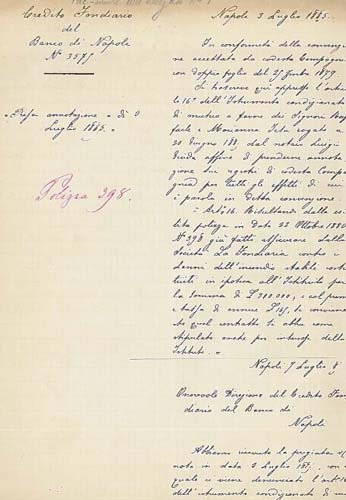 Credito Fondiario
del
Banco di Napoli
Nº 3575
"Presa annotazione = di 9
Luglio 1885. "
Polizza 398.
Napoli 3 Luglio 1885.
In conformità della convenzione
accettata da codesta Compagnia
con doppio foglio del 27 1879
Si trascrive qui appresso l'articolo
16º dell'Istrumento condizionato
di mutuo a favore dei Signori
e Marianna rogato a
30 Giugno dal notaio Luigi
affine di prendersene annota
zione sui registri di codesta Compa
gnia per tutti gli effetti di cui
è parola in detta convenzione.
= Art.º 16. Risultando dalla
polizza in data 23 Ottobre 1880
Nº 398 già fatto assicurare dalla
Società La Fondiaria contro i
danni dell'incendio stabili costi
tuiti in ipoteca all'Istituto per
la somma di £ 300.000; e col premio
di annue £ 157, si conviene
che quel contratto si abbia come
stipulato anche per interesse dello
Istituto. "
Napoli 7 Luglio 8
Onorevole Direzione del Credito Fon
diario del Banco di
Napoli
Abbiamo ricevuto la pregiata
nota in data 3 Luglio con
quale ci viene denunciato l'artº 16
dell'istrumento condizionato di